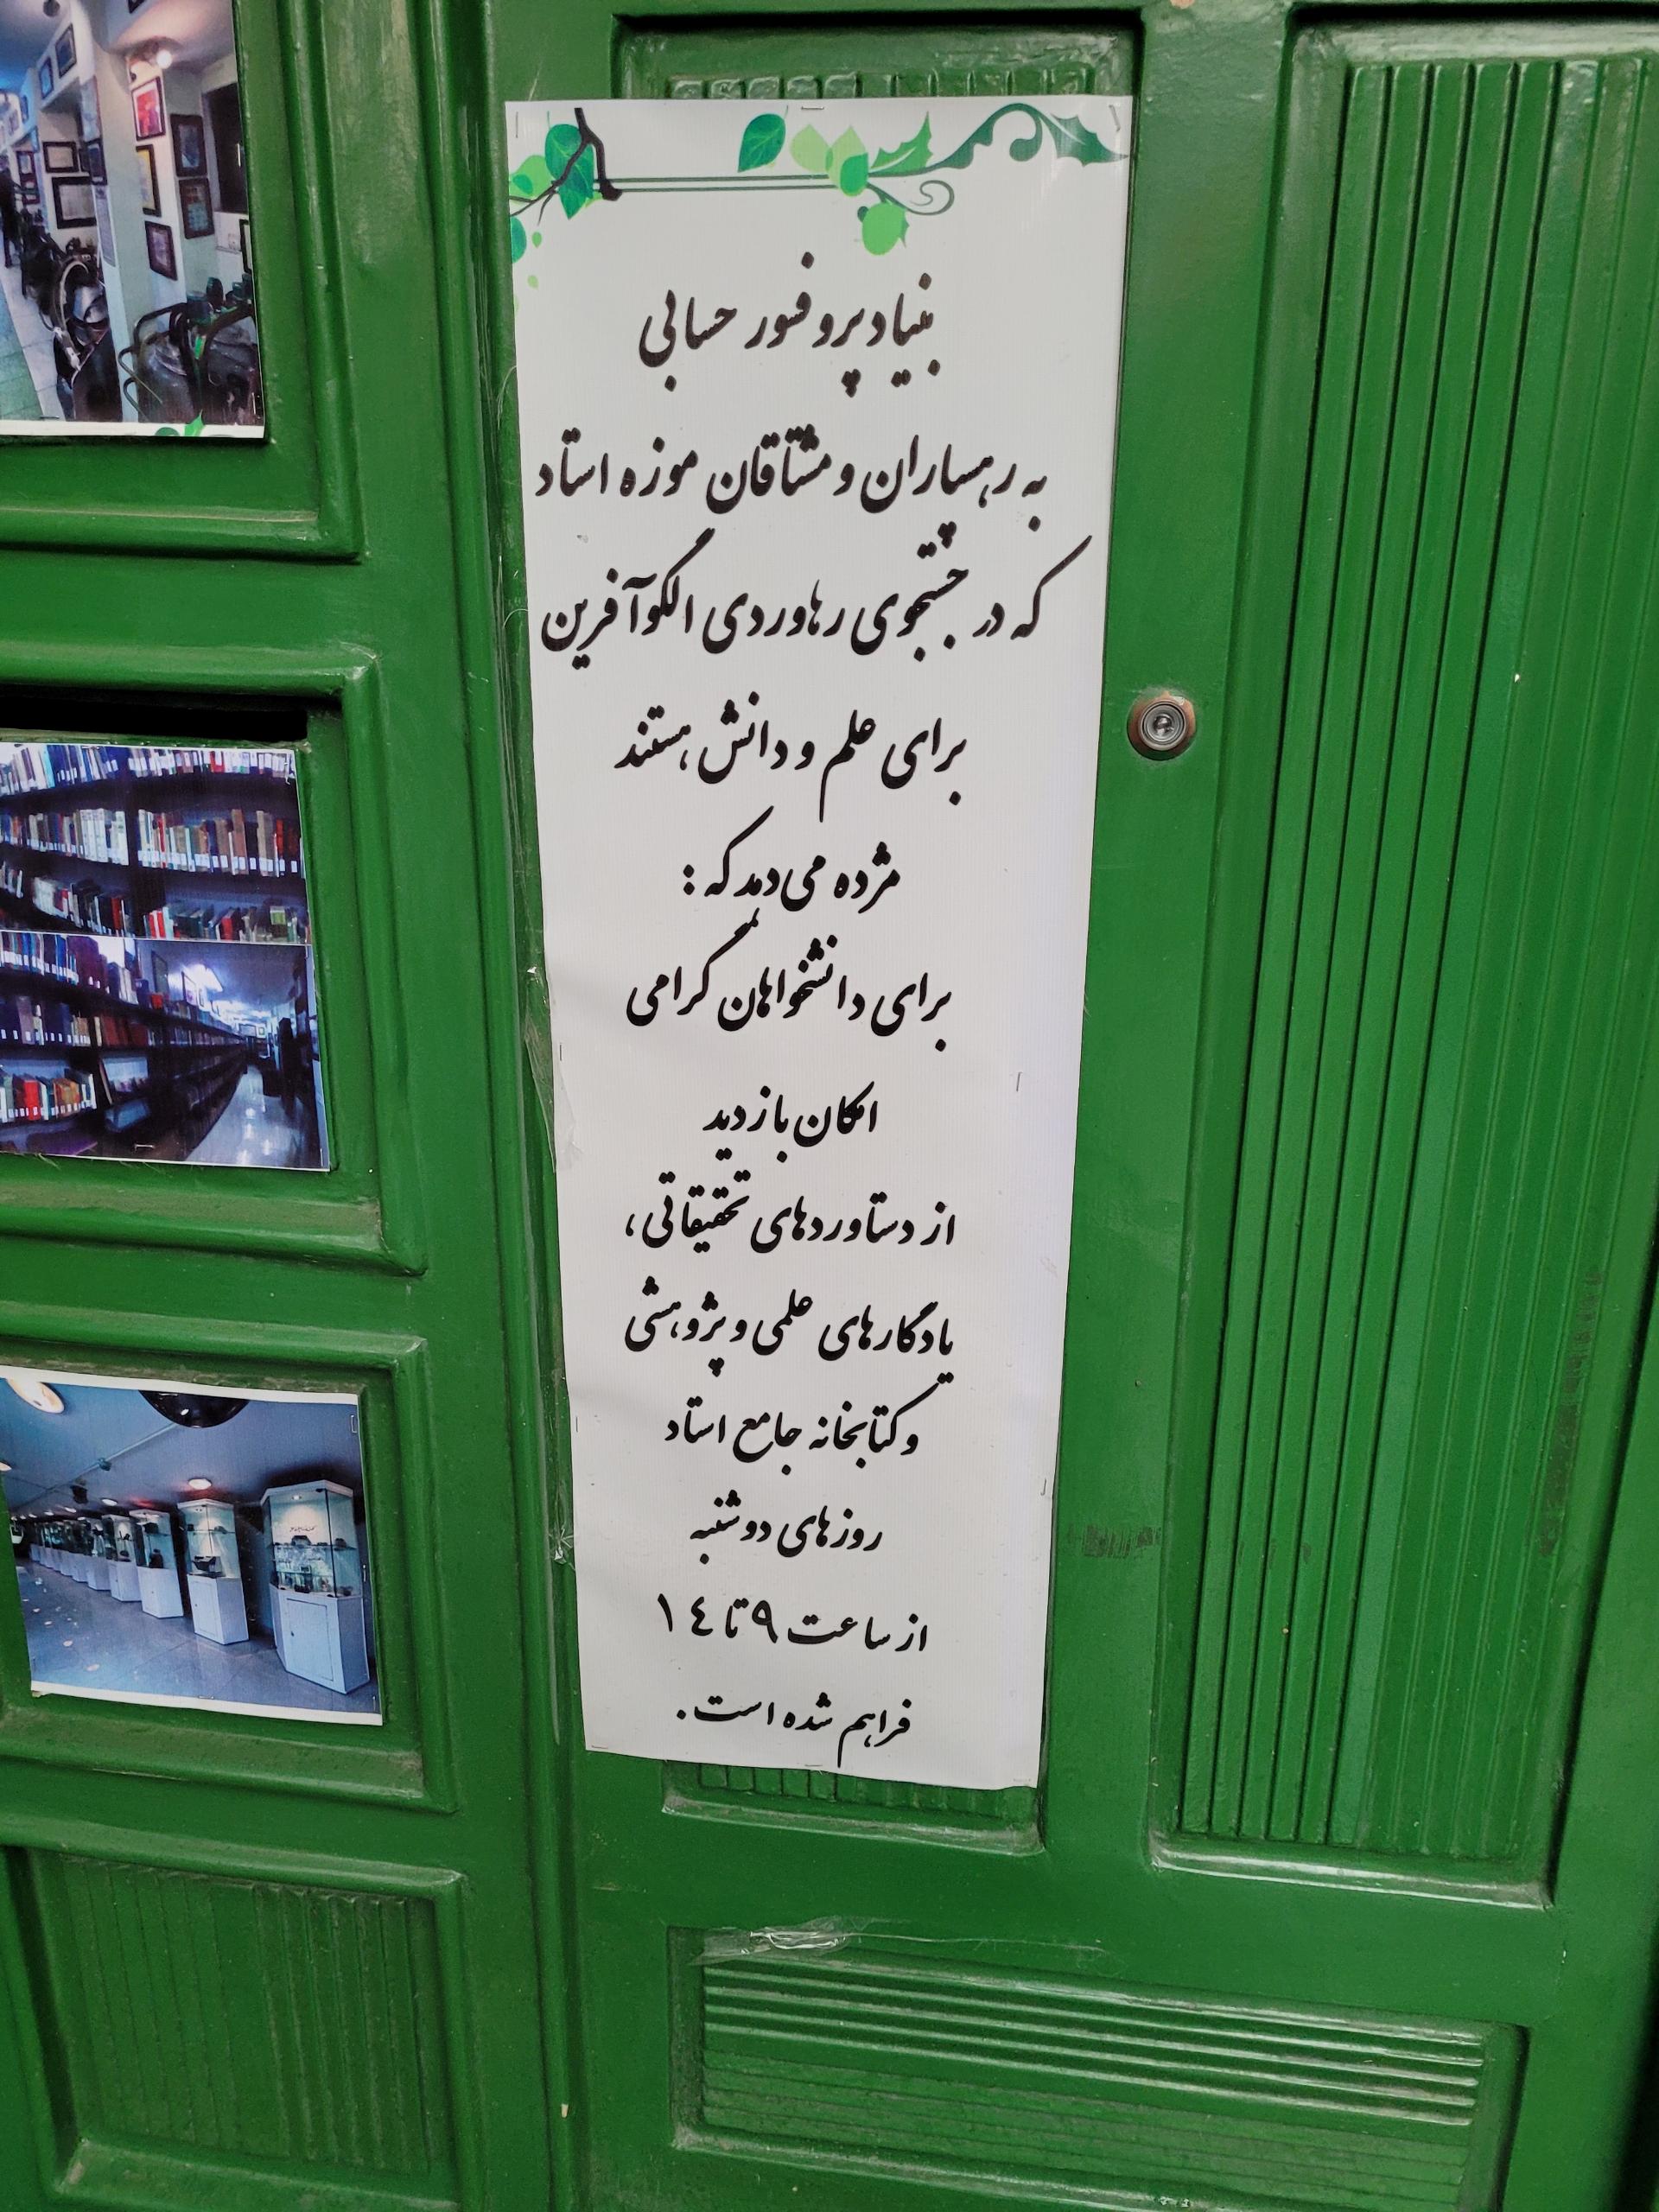 بنیاد پروفسور حسابی
به رهسپاران و مشتاقان موزه استاد
که در جستجوی رهاوردی الگوآفرین
برای علم و دانش هستند
مژده می‌دهد که :
برای دانشخواهان گرامی
امکان بازدید
از دستاوردهای تحقیقاتی ،
یادگارهای علمی و پژوهشی
و کتابخانه جامع استاد
روزهای دوشنبه
از ساعت ۹ تا ١٤
فراهم شده است .